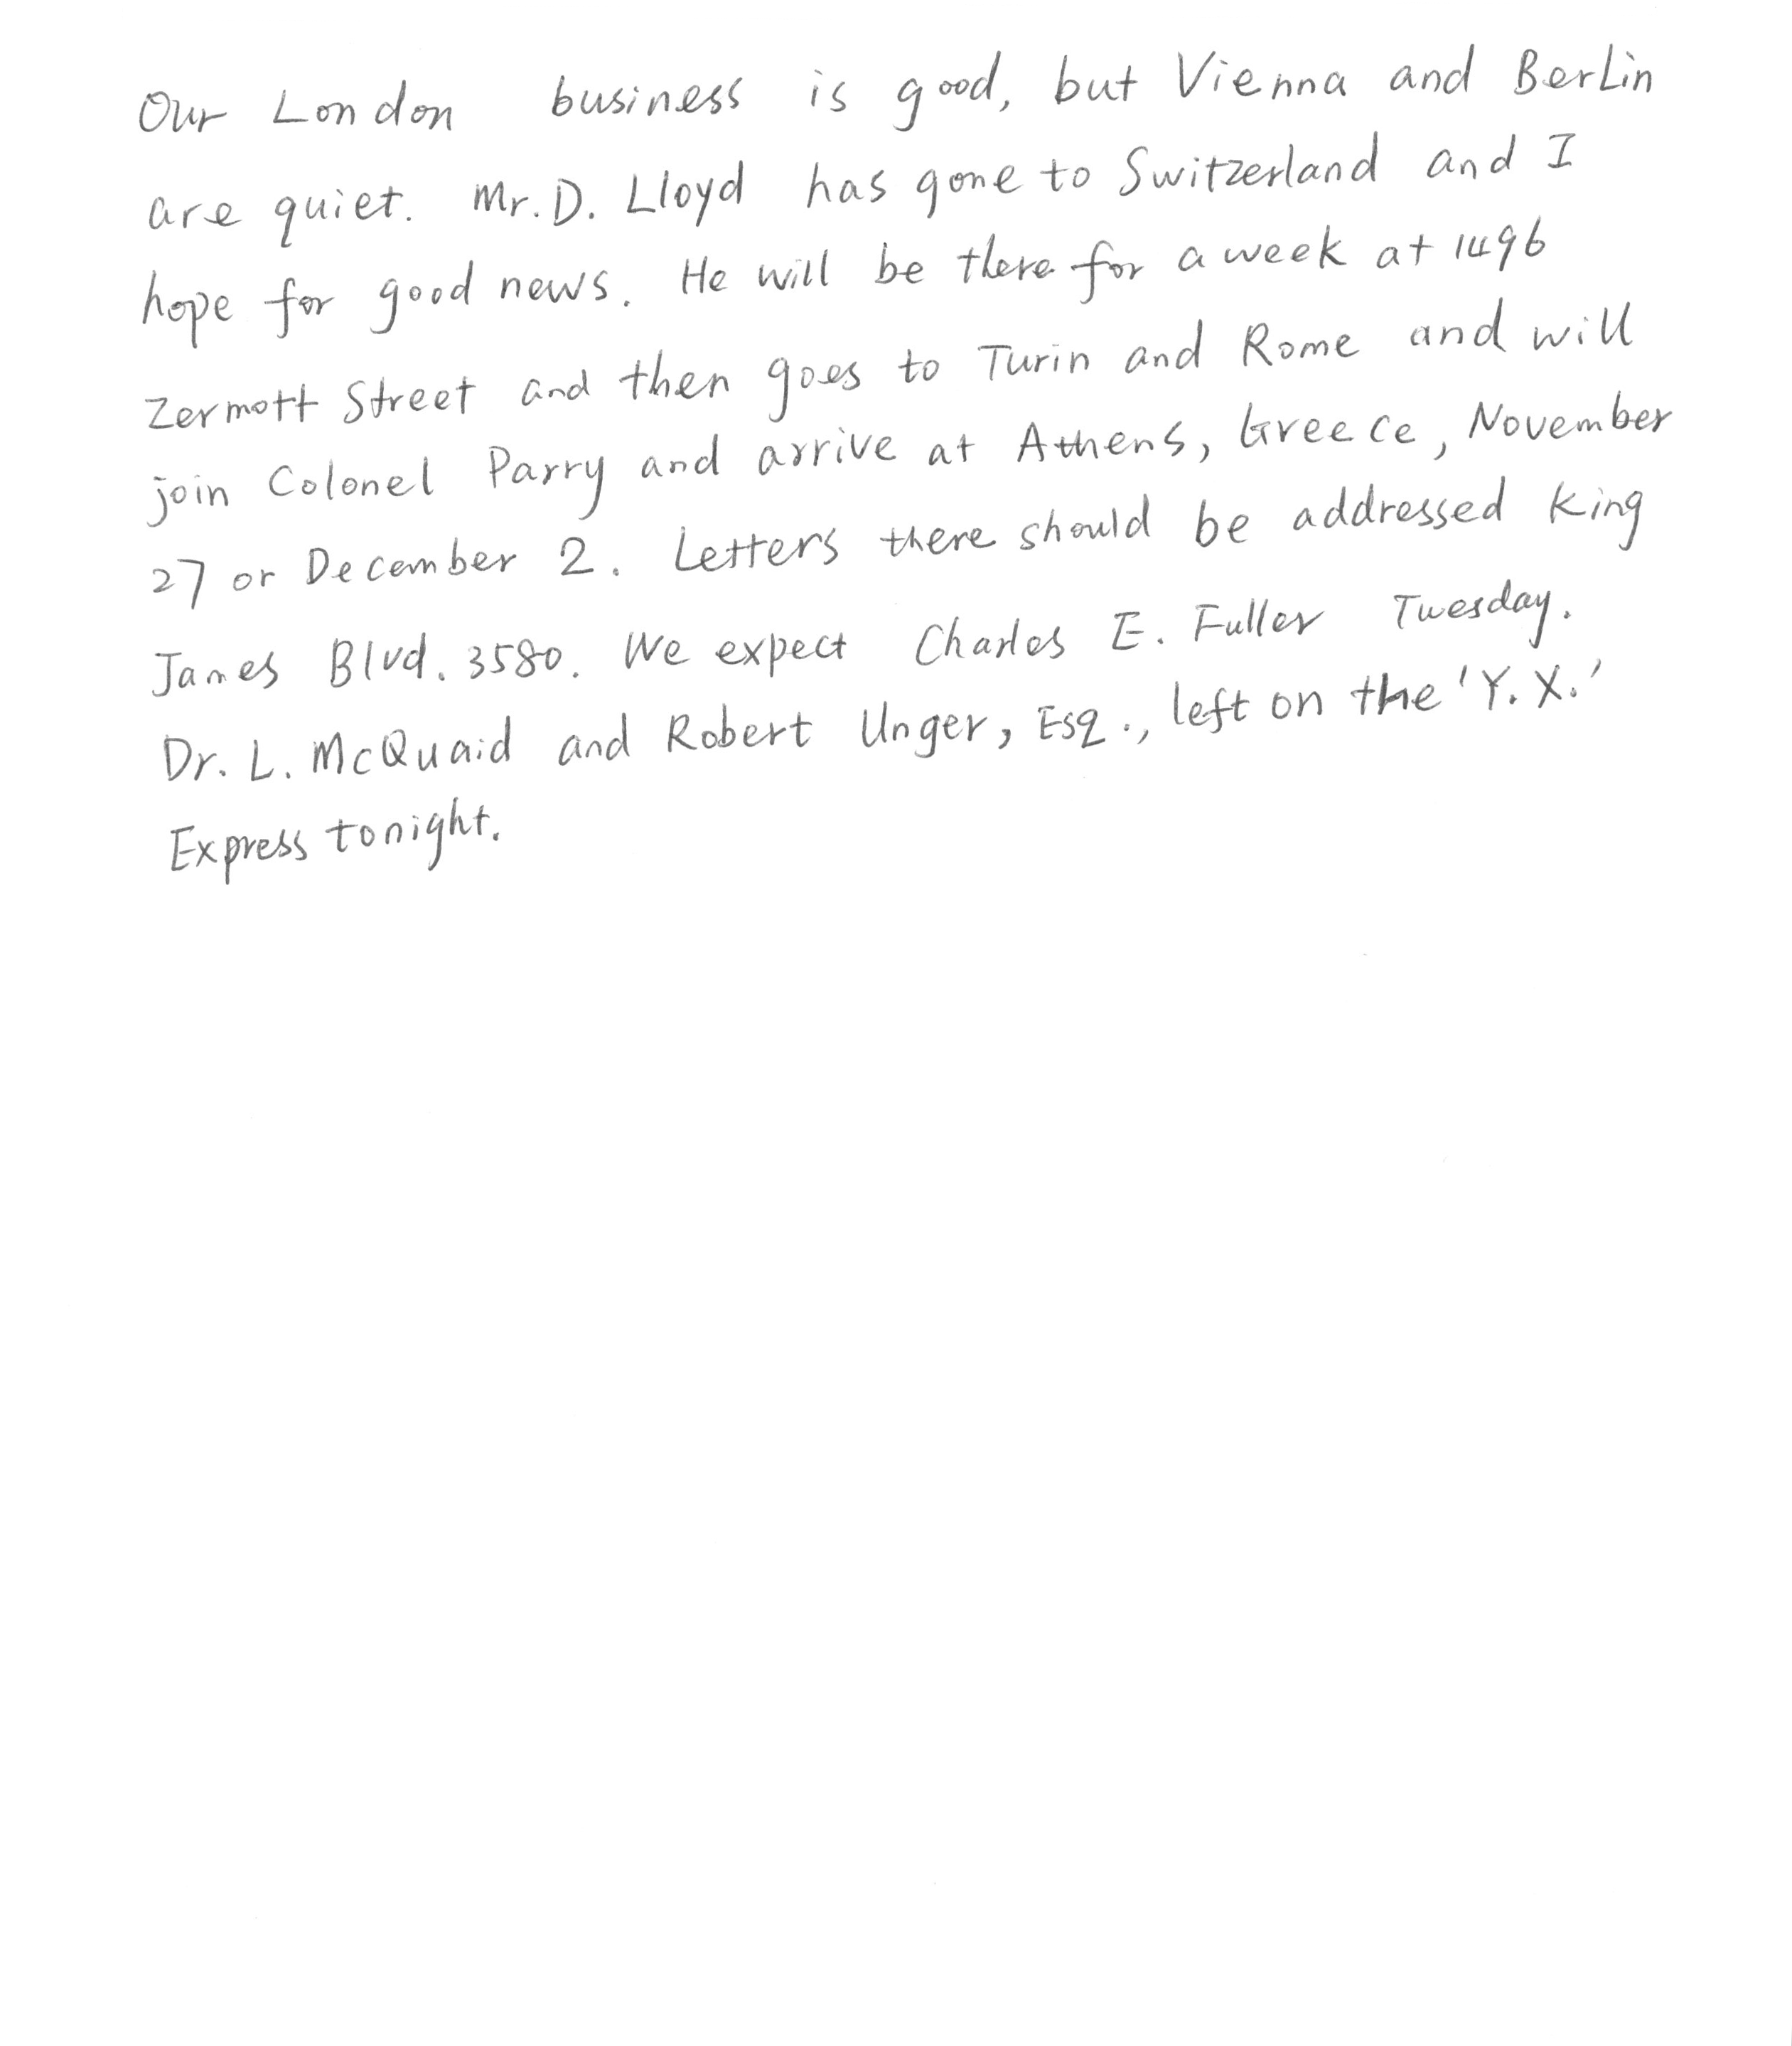 Our London business is good, but Vienna and Berlin
are quiet. Mr. D. Lloyd has gone to Switzerland and I
hope for good news. He will be there for a week at 1496
Zermott Street and then goes to Turin and Rome and will
join Colonel Parry and arrive at Athens, Greece, November
27 or December 2. Letters there should be addressed King
James Blvd. 3580. We expect Charles E. Fuller Tuesday.
Dr. L. McQuaid and Robert Unger, Esq., left on the 'Y.X.'
Express tonight.